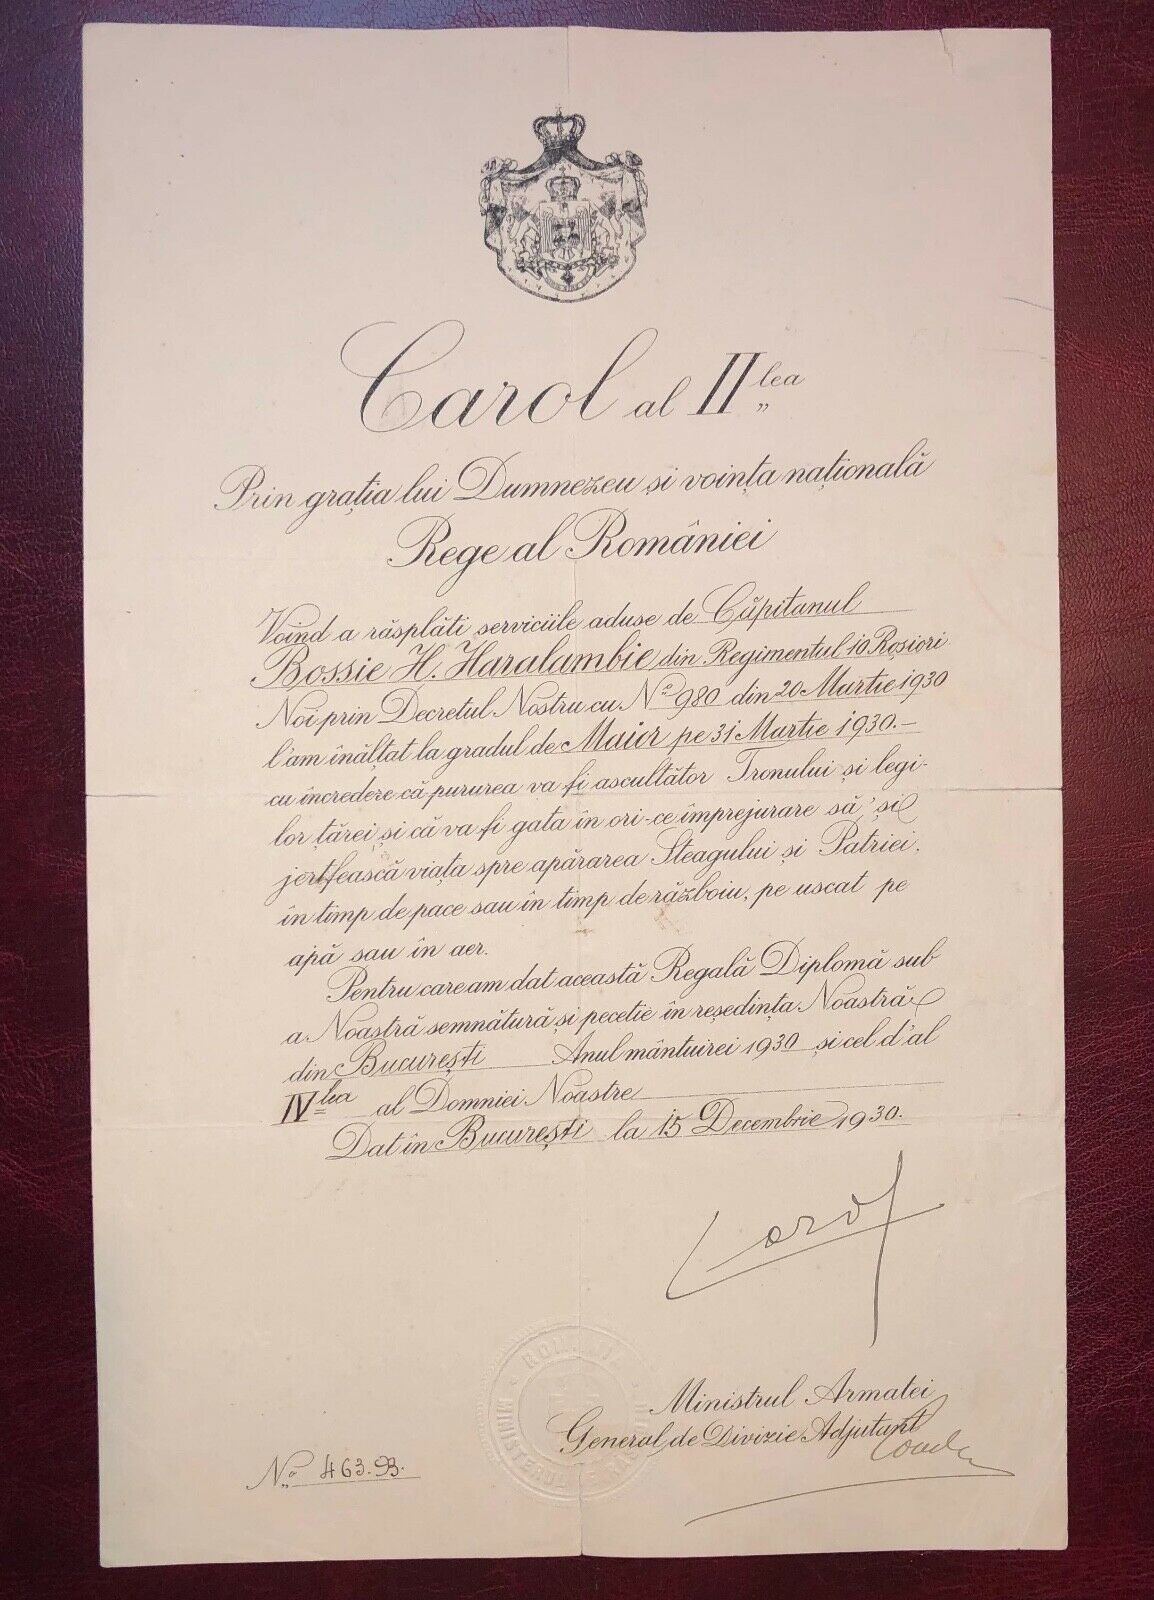 Carol al II lea
Prin grația lui Dumnezeu și voința națională
Rege al României
Voind a răsplăti serviciile aduse de Căpitanul
Bossie H. Haralambie din Regimentul 10 Roșiori
Noi prin Decretul Nostru cu No 980 din 20 Martie 1930
l'am înălțat la gradul de Maior pe 31 Martie 1930.-
cu încredere că pururea va fi ascultător Tronului și legi-
lor țărei și că va fi gata in ori-ce împrejurare să'și
jertfească viața spre apărarea Steagului și Patriei,
în timp de pace sau în timp de războiu, pe uscat pe
apă sau în aer.
Pentru care am dat această Regală Diplomă sub
a Noastră semnătură și pecetie în reședința Noastră
din București Anul mântuirei 1930 și cel d'al
IV lea al Domniei Noastre
Dat în București la 15 Decembrie 1930.
Carol
Ministrul Armatei
General de Divizie Adjutant
ROMANIA
MINISTERUL
No 463.93.